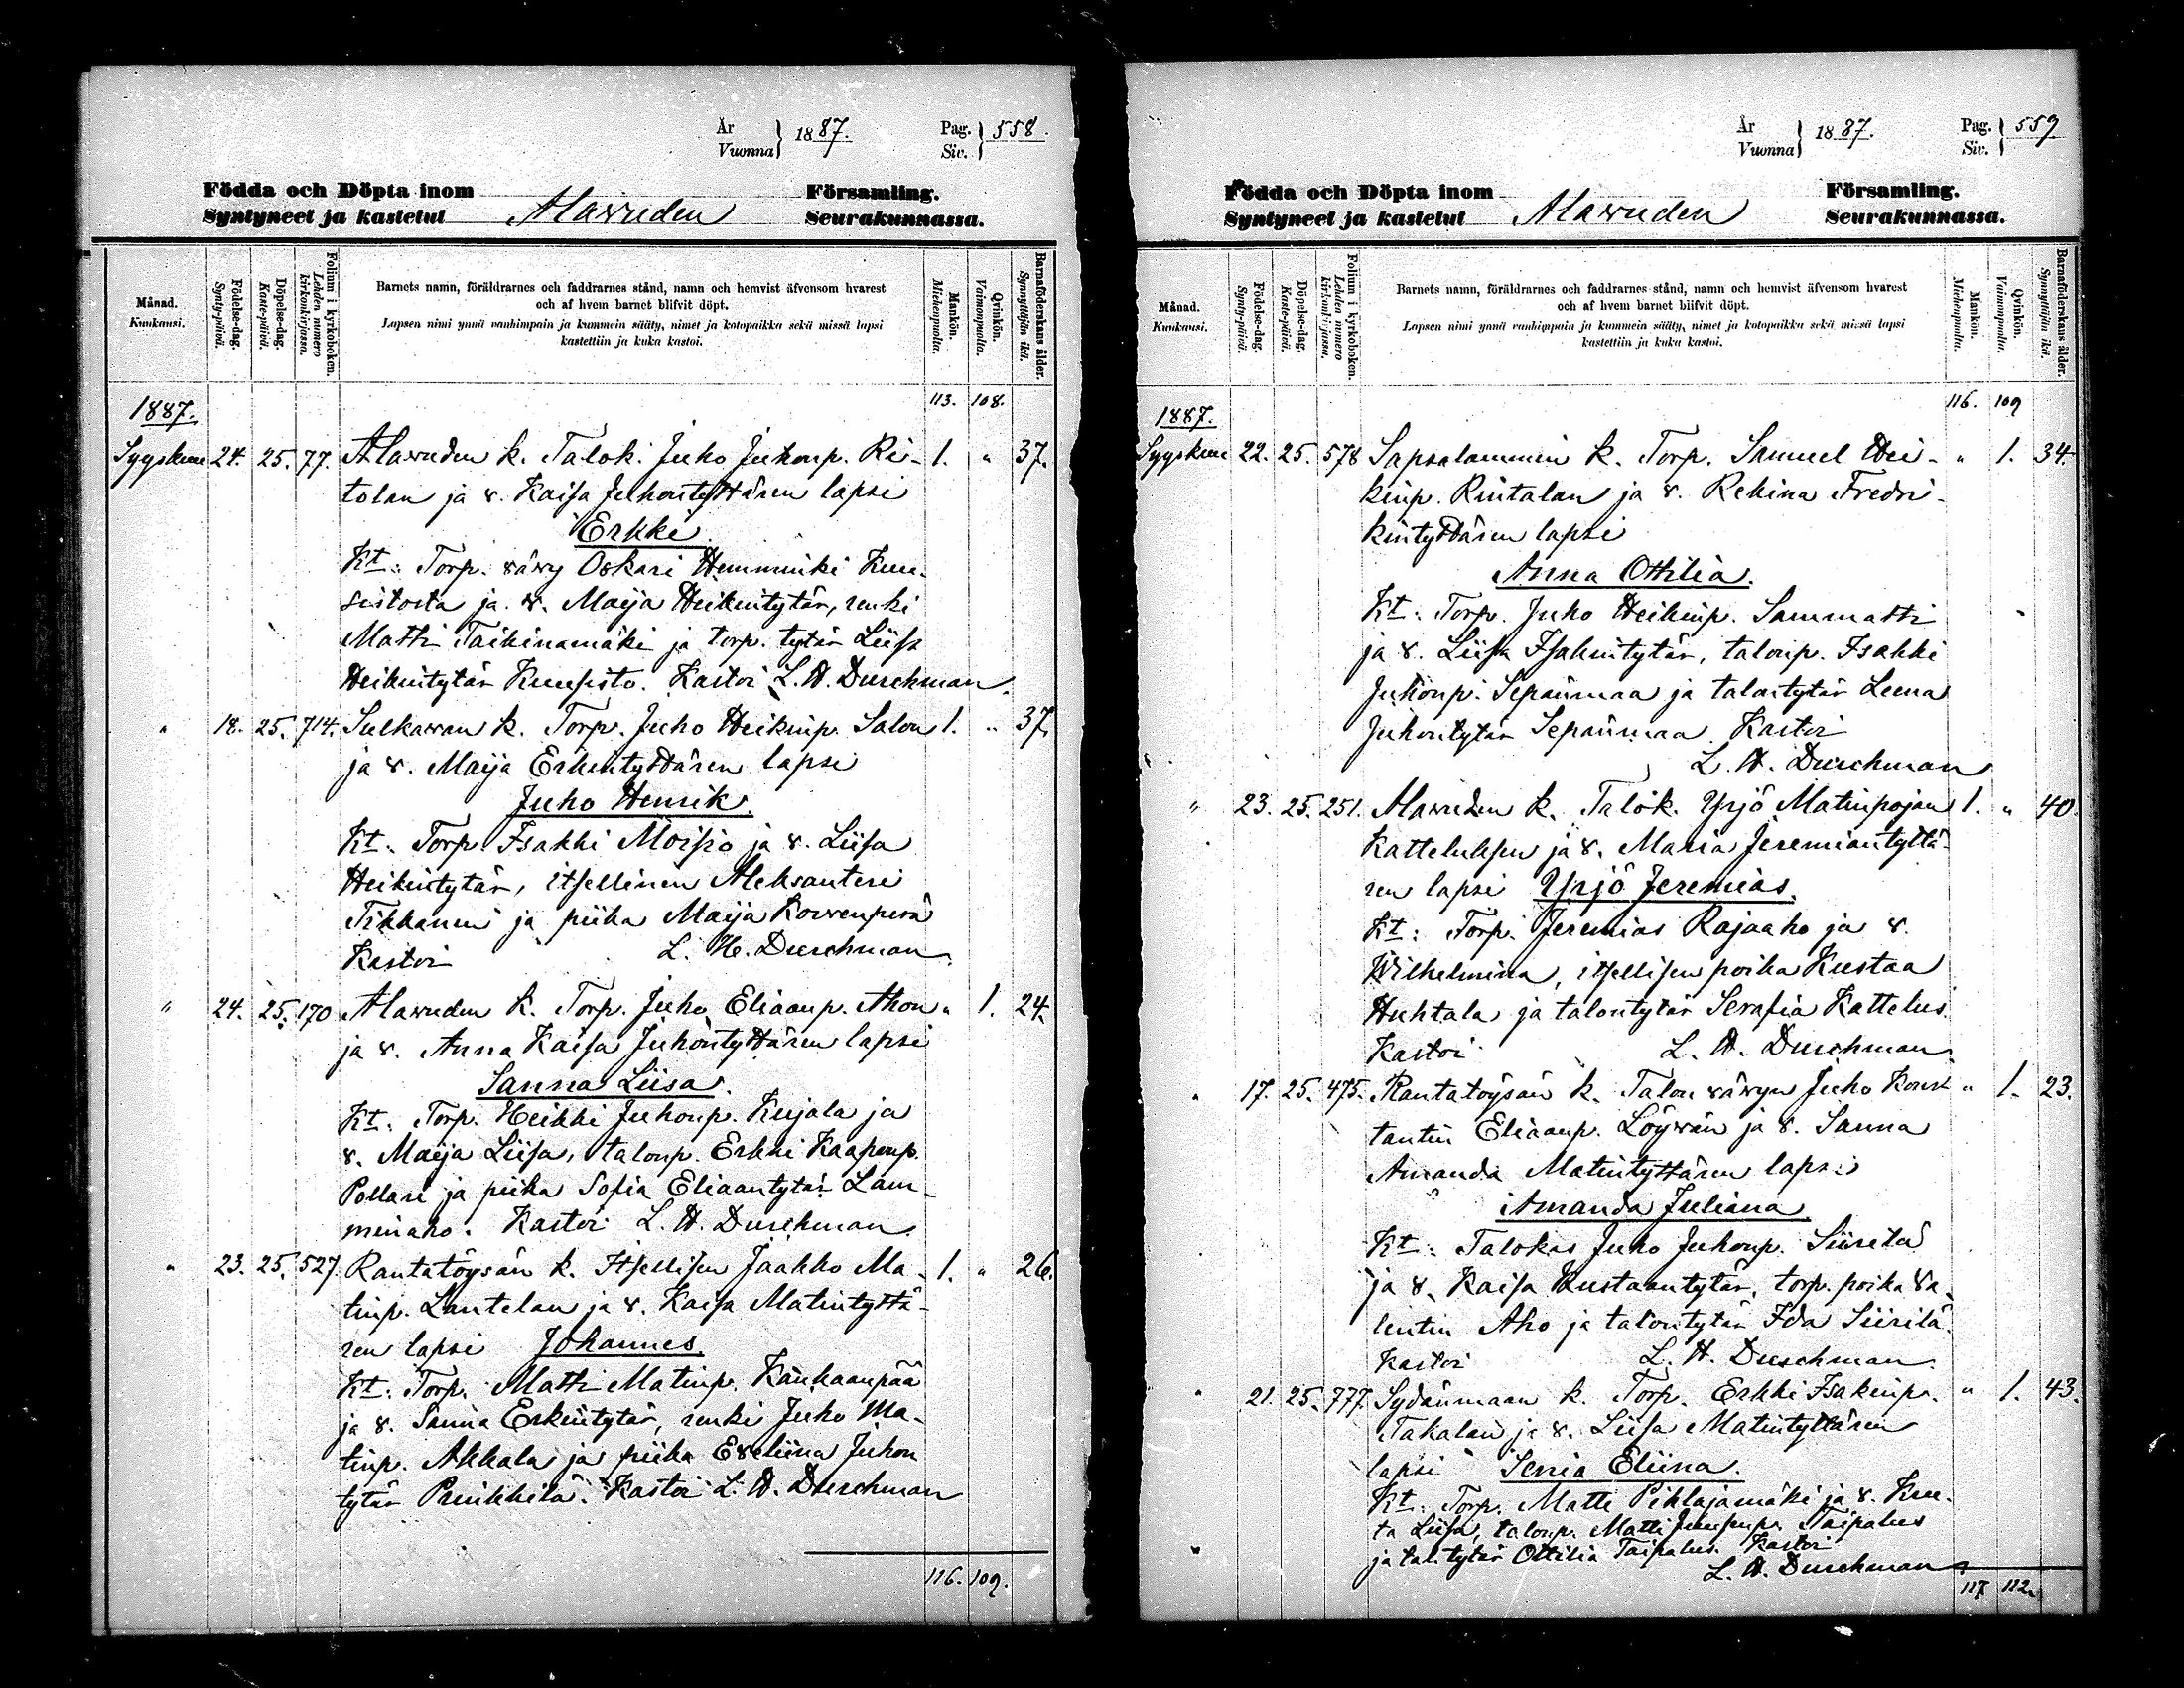 År
Vuonna } 1887. Pag.
Siv. } 558.
Födda och Döpta inom Församling.
Syntyneet ja kastetut Alawuden Seurakunnassa.
Månad.
Kuukausi.
Födelse-dag.
Synty-päivä.
Döpelse-dag.
Kaste-päivä.
Folium i kyrkoboken.
Lehden numero kirkonkirjassa.
Barnets namn, föräldrarnes och faddrarnes stånd, namn och hemvist äfvensom hvarest
och af hvem barnet blifvit döpt.
Lapsen nimi ynnä vanhimpain ja kummein sääty, nimet ja kotopaikka sekä missä lapsi
kastettiin ja kuka kastoi.
Mankön.
Miehenpuolta.
Qvinkön.
Vaimonpuolta.
Barnaföderskans ålder.
Synnyttäjän ikä.
1887. 113. 108.
Syyskuu 24. 25. 77. Alawuden k. Talok. Juho Juhonp. Ri- 1. " 37.
tolan ja v. Kaisa Juhontyttären lapsi
Erkki.
Kt: Torp. vävy Oskari Hemminki Kuu-
sistosta ja v. Maija Heikintytär, renki
Matti Taikinamäki ja torp. tytär Liisa
Heikintytär Kuusisto. Kastoi L. H. Durchman.
" 18. 25. 714. Sulkavan k. Torp. Juho Heikinp. Salon 1. " 37.
ja v. Maija Erkintyttären lapsi
Juho Henrik.
Kt. Torp. Isakki Moisio ja v. Liisa
Heikintytär, itsellinen Aleksanteri
Tikkanen ja piika Maija Korvenperä
Kastoi L. H. Durchman.
" 24. 25. 170 Alawuden k. Torp. Juho Eliaanp. Ahon " 1. 24.
ja v. Anna Kaisa Juhontyttären lapsi
Sanna Liisa.
Kt: Torp. Heikki Juhonp. Kujala ja
v. Maija Liisa, talonp. Erkki Kaaponp.
Pollari ja piika Sofia Eliaantytär Lam-
minaho. Kastoi L. H. Durchman.
" 23. 25. 527. Rantatöysän k. Itsellisen Jaakko Ma- 1. " 26.
tinp. Lantelan ja v. Kaisa Matintyttä-
ren lapsi Johannes.
Kt: Torp. Matti Matinp. Kankaanpää
ja v. Sanna Erkintytär, renki Juho Ma-
tinp. Akkala ja piika Eveliina Juhon
tytär Prinkkilä. Kastoi L. H. Durchman
116. 109.
År
Vuonna } 1887. Pag.
Siv. } 559
Födda och Döpta inom Församling.
Syntyneet ja kastetut Alawuden Seurakunnassa.
Månad.
Kuukausi.
Födelse-dag.
Synty-päivä.
Döpelse-dag.
Kaste-päivä.
Folium i kyrkoboken.
Lehden numero kirkonkirjassa.
Barnets namn, föräldrarnes och faddrarnes stånd, namn och hemvist äfvensom hvarest
och af hvem barnet blifvit döpt.
Lapsen nimi ynnä vanhimpain ja kummein sääty, nimet ja kotopaikka sekä missä lapsi
kastettiin ja kuka kastoi.
Mankön.
Miehenpuolta.
Qvinkön.
Vaimonpuolta.
Barnaföderskans ålder.
Synnyttäjän ikä.
1887. 116. 109
Syyskuu 22. 25. 578 Sapsalammin k. Torp. Samuel Hei- " 1. 34.
kinp. Rintalan ja v. Rekina Fredri-
kintyttären lapsi
Anna Ottilia.
Kt: Torp. Juho Heikinp. Sammatti
ja v. Liisa Isakintytär, talonp. Isakki
Juhonp. Sepänmaa ja talontytär Leena
Juhontytär Sepänmaa. Kastoi
L. H. Durchman
" 23. 25. 251. Alawuden k. Talok. Yrjö Matinpojan 1. " 40.
Katteluksen ja v. Maria Jeremiantyttä-
ren lapsi Yrjö Jeremias.
Kt: Torp. Jeremias Rajaaho ja v.
Wilhelmina, itsellisen poika Kustaa
Huhtala ja talontytär Serafia Kattelus.
Kastoi L. H. Durchman.
" 17. 25. 475. Rantatöysän k. Talon vävyn Juho Kons- " 1. 23.
tantin Eliaanp. Löyvän ja v. Sanna
Amanda Matintyttären lapsi
Amanda Juliana.
Kt: Talokas Juho Juhonp. Siirilä
ja v. Kaisa Kustaantytär, torp. poika Va-
lentin Aho ja talontytär Ida Siirilä.
Kastoi L. H. Durchman.
" 21. 25. 777. Sydänmaan k. Torp. Erkki Isakinp. " 1. 43.
Takalan ja v. Liisa Matintyttären
lapsi Senia Eliina.
Kt: Torp. Matti Pihlajamäki ja v. Kree-
ta Liisa, talonp. Matti Taipalus
ja tal. tytär Ottilia Taipalus. Kastoi
L. H. Durchman
117 112